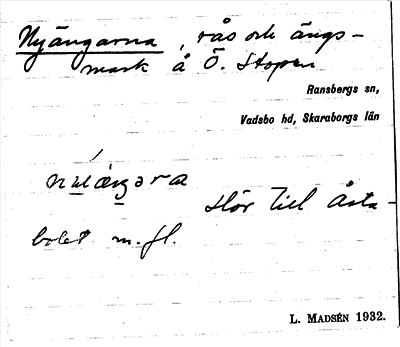 Nyängarna, rås och ängs-
mark å Ö. Stopen
Ransbergs sn,
Vadsbo hd, Skaraborgs län
hör till Åsta-
bolet m. fl.
L. MADSÉN 1932.